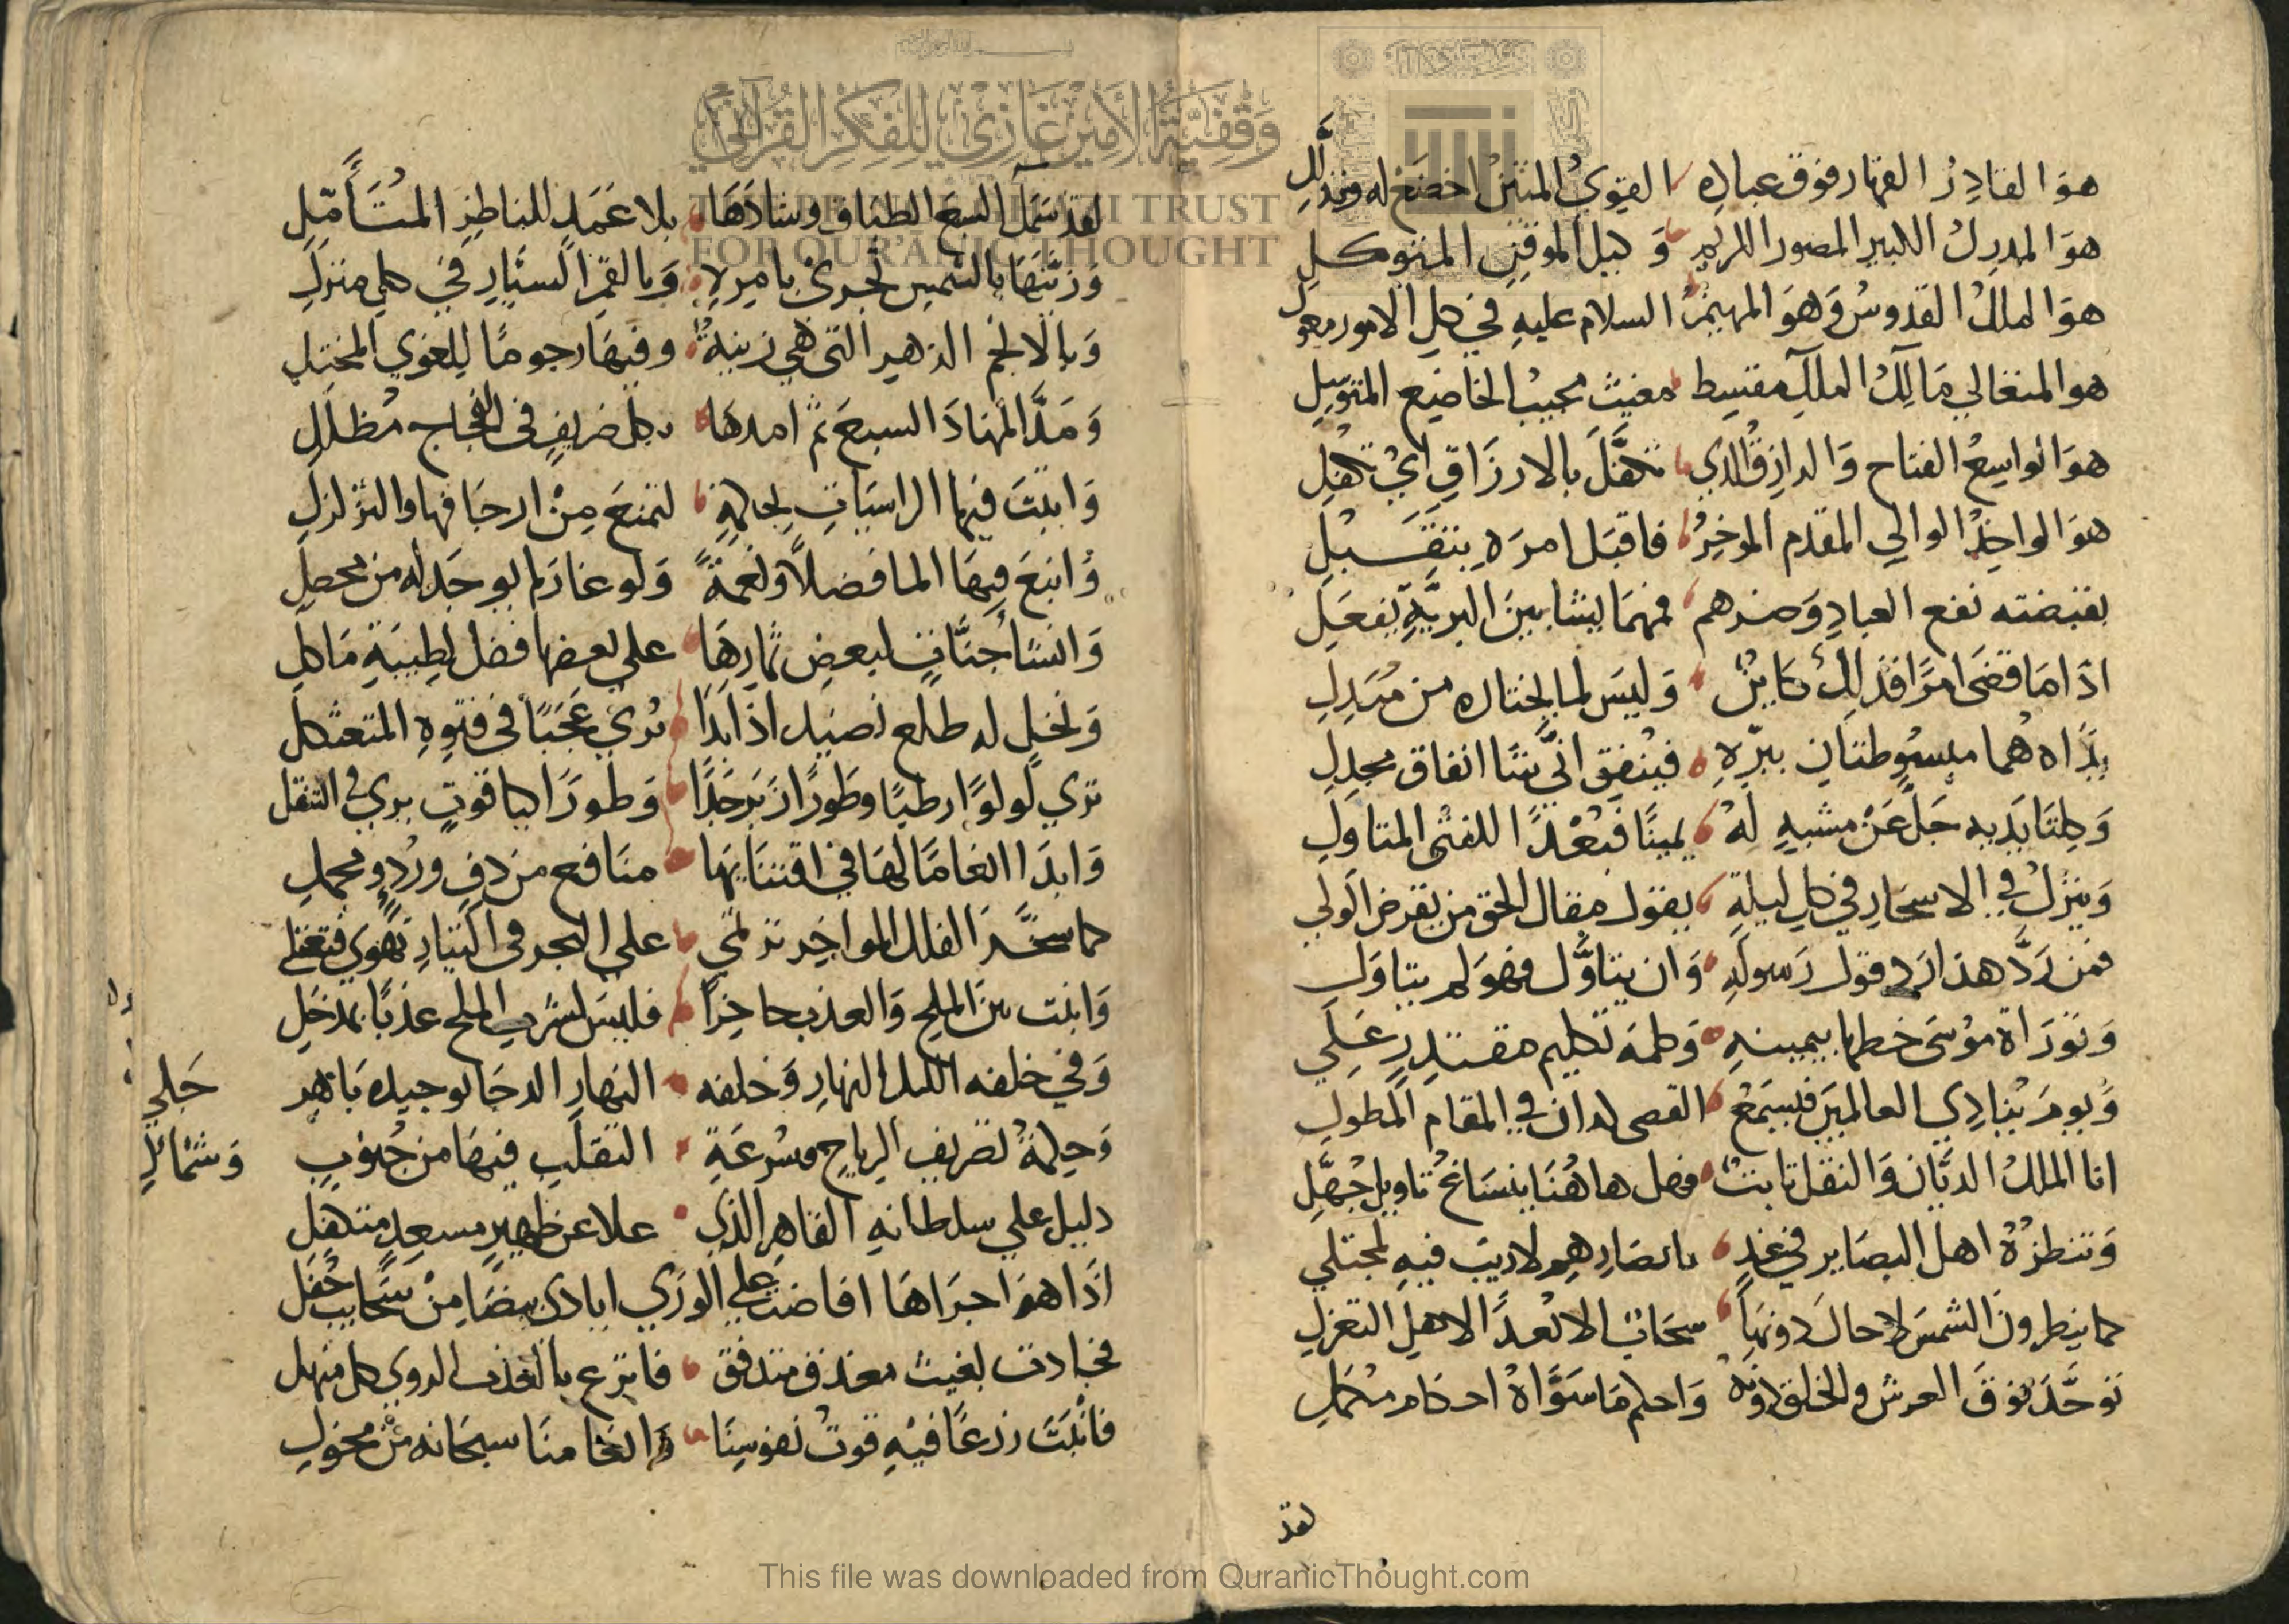 هوَ القادِرُ القهار فوق عباده القويُّ المتين اخضع له وتذلَّلِ
هوَ المدرك الكبير المصور الكريم وَكيل الموقنِ المتوكلِ
هوَ الملكُ القدوسُ وَهوَ المهيمنُ السلام عليهِ في كل الامور معول
هو المتعالي مَالِكُ الملكِ مقسِط مغيث مجيب الخاضِع المتوسِلِ
هوَ الواسِعُ الفتاح وَالرازِقُ الذي تكفَّلَ بالارزَاقِ ايْ تكفلِ
هوَ الواحِدُ الوالي المقدم الموخِرُ فاقبَل امرَهِ بتقَبلِ
بقبضته نفع العبادِ وَضرهم فمهمَا يشا بينَ البريَّةِ يفعَلِ
اذا مَا قضَى امرًا فذلكَ كاينٌ وَليسَ لما يختاره من مبَدِلِ
يدَاه هُما مبسُوطتانِ ببرّهِ فيُنفِق انَّى شا انفاق مجزلِ
وَكلتَا يدَيه جَلَّ عَنْ مشبهٍ لهُ يمينًا فبُعْدًا للفتى المتاولِ
وَينزلُ في الاسحَارِ في كلِ ليلةٍ يقول مقال الحق من يقرض الوَلي
فمن رَدَّ هذا رَد قول رَسولهِ وَان يتاوَّل فهوَ لم يتاوَلِ
وَتورَاة مُوسَى خطها بيمينهِ وَكلمَه تكليم مقتدِرٍ عَلِي
وَيومَ يُنادِي العالمينَ فيسمَعُ القصى لدان في المقام المطولِ
انا الملكُ الديَّان وَالنقل ثابتٌ فهل هاهُنَا ينسَاغُ تاويل جُهَّلِ
وَتنظرُهُ اهل البصَاير في غدٍ بابصَارِهِم لا ريبَ فيهِ لمجتلي
كما ينظرونَ الشمسَ لا حال دونهَا سحَابٌ الا بُعدًا لاهل التعزلِ
توحَّدَ فوقَ العرشِ والخلق دونَهُ وَاحكم مَا سَوَّاهُ احكام مكمَلِ
لقد
لقد سَمكَ السبع الطباق وشادَهَا بلا عَمَدٍ للناظرِ المتَأَمّلِ
وَزيَّنَهَا بالشمسِ تُجرى بامرِهِ وَبالقمرِ السيَّارِ في كل منزلِ
وَبالانجم الزهر التي هي زينةٌ وفيهَا رجومًا لِلغوي المختلِ
وَمَدَّ المهَادَ السبعَ ثم امدهَا بكل ضريفٍ في الفجاج مُظللِ
وَاثبتَ فيها الراسيَاتِ لحكمةٍ لتمنعَ مِنْ ارجَافها والتزلزلِ
وَانبعَ فِيهَا الما فضلاً ونعمةً وَلو غار لم يوجَد له من محصلِ
وَانشا جنَّاتٍ لبعضِ ثمارِهَا على بعضها فضل لِطِيبَةِ مَاكلِ
وَنخلٍ له طلع نضيد اذا بَدَا تُرى عَجَبًا في قنوهِ المتعثكلِ
ترى لولوًا رطبًا وطَورًا زَبَرجَدًا وَطورًا كياقوتٍ يرى في التنقل
وَابدَا انعامًا لهَا في اقتنايهَا منَافع من دفٍ ورُدٍ ومحملِ
كما سخَّرَ الفلك المواخِر ترتمي على البحر في التيارِ تهوي فتعتلِ
وَاثبت بينَ الملحِ وَالعذب حاجِزًا فليسَ لشرب الملح عذبًا بمدخَلِ
وَفي خلفه الليل النهارِ وَخلفه النهارِ الدجَا توحيده بَاهر جَلي
وَحكمةُ تصريف الرياحِ وسُرعَةِ التقلبِ فيهَا من جُنوبٍ وَشمْائلِ
دليل على سلطانهِ القاهِر الذي علا عن ظهيرٍ مسعدٍ متكفلِ
اذَا هوَ اجرَاهَا افاضت على الورَي ايادى بيضَا مِنْ سَحَايب حُفلِ
فجادت بغيث مغدقٍ متدفقٍ فاترع بالغدفِ الروي كل منهلِ
فانْبَتَ زرعًا فيهِ قوتُ نفوسِنَا وانعامنَا سبحَانه منْ مخولِ